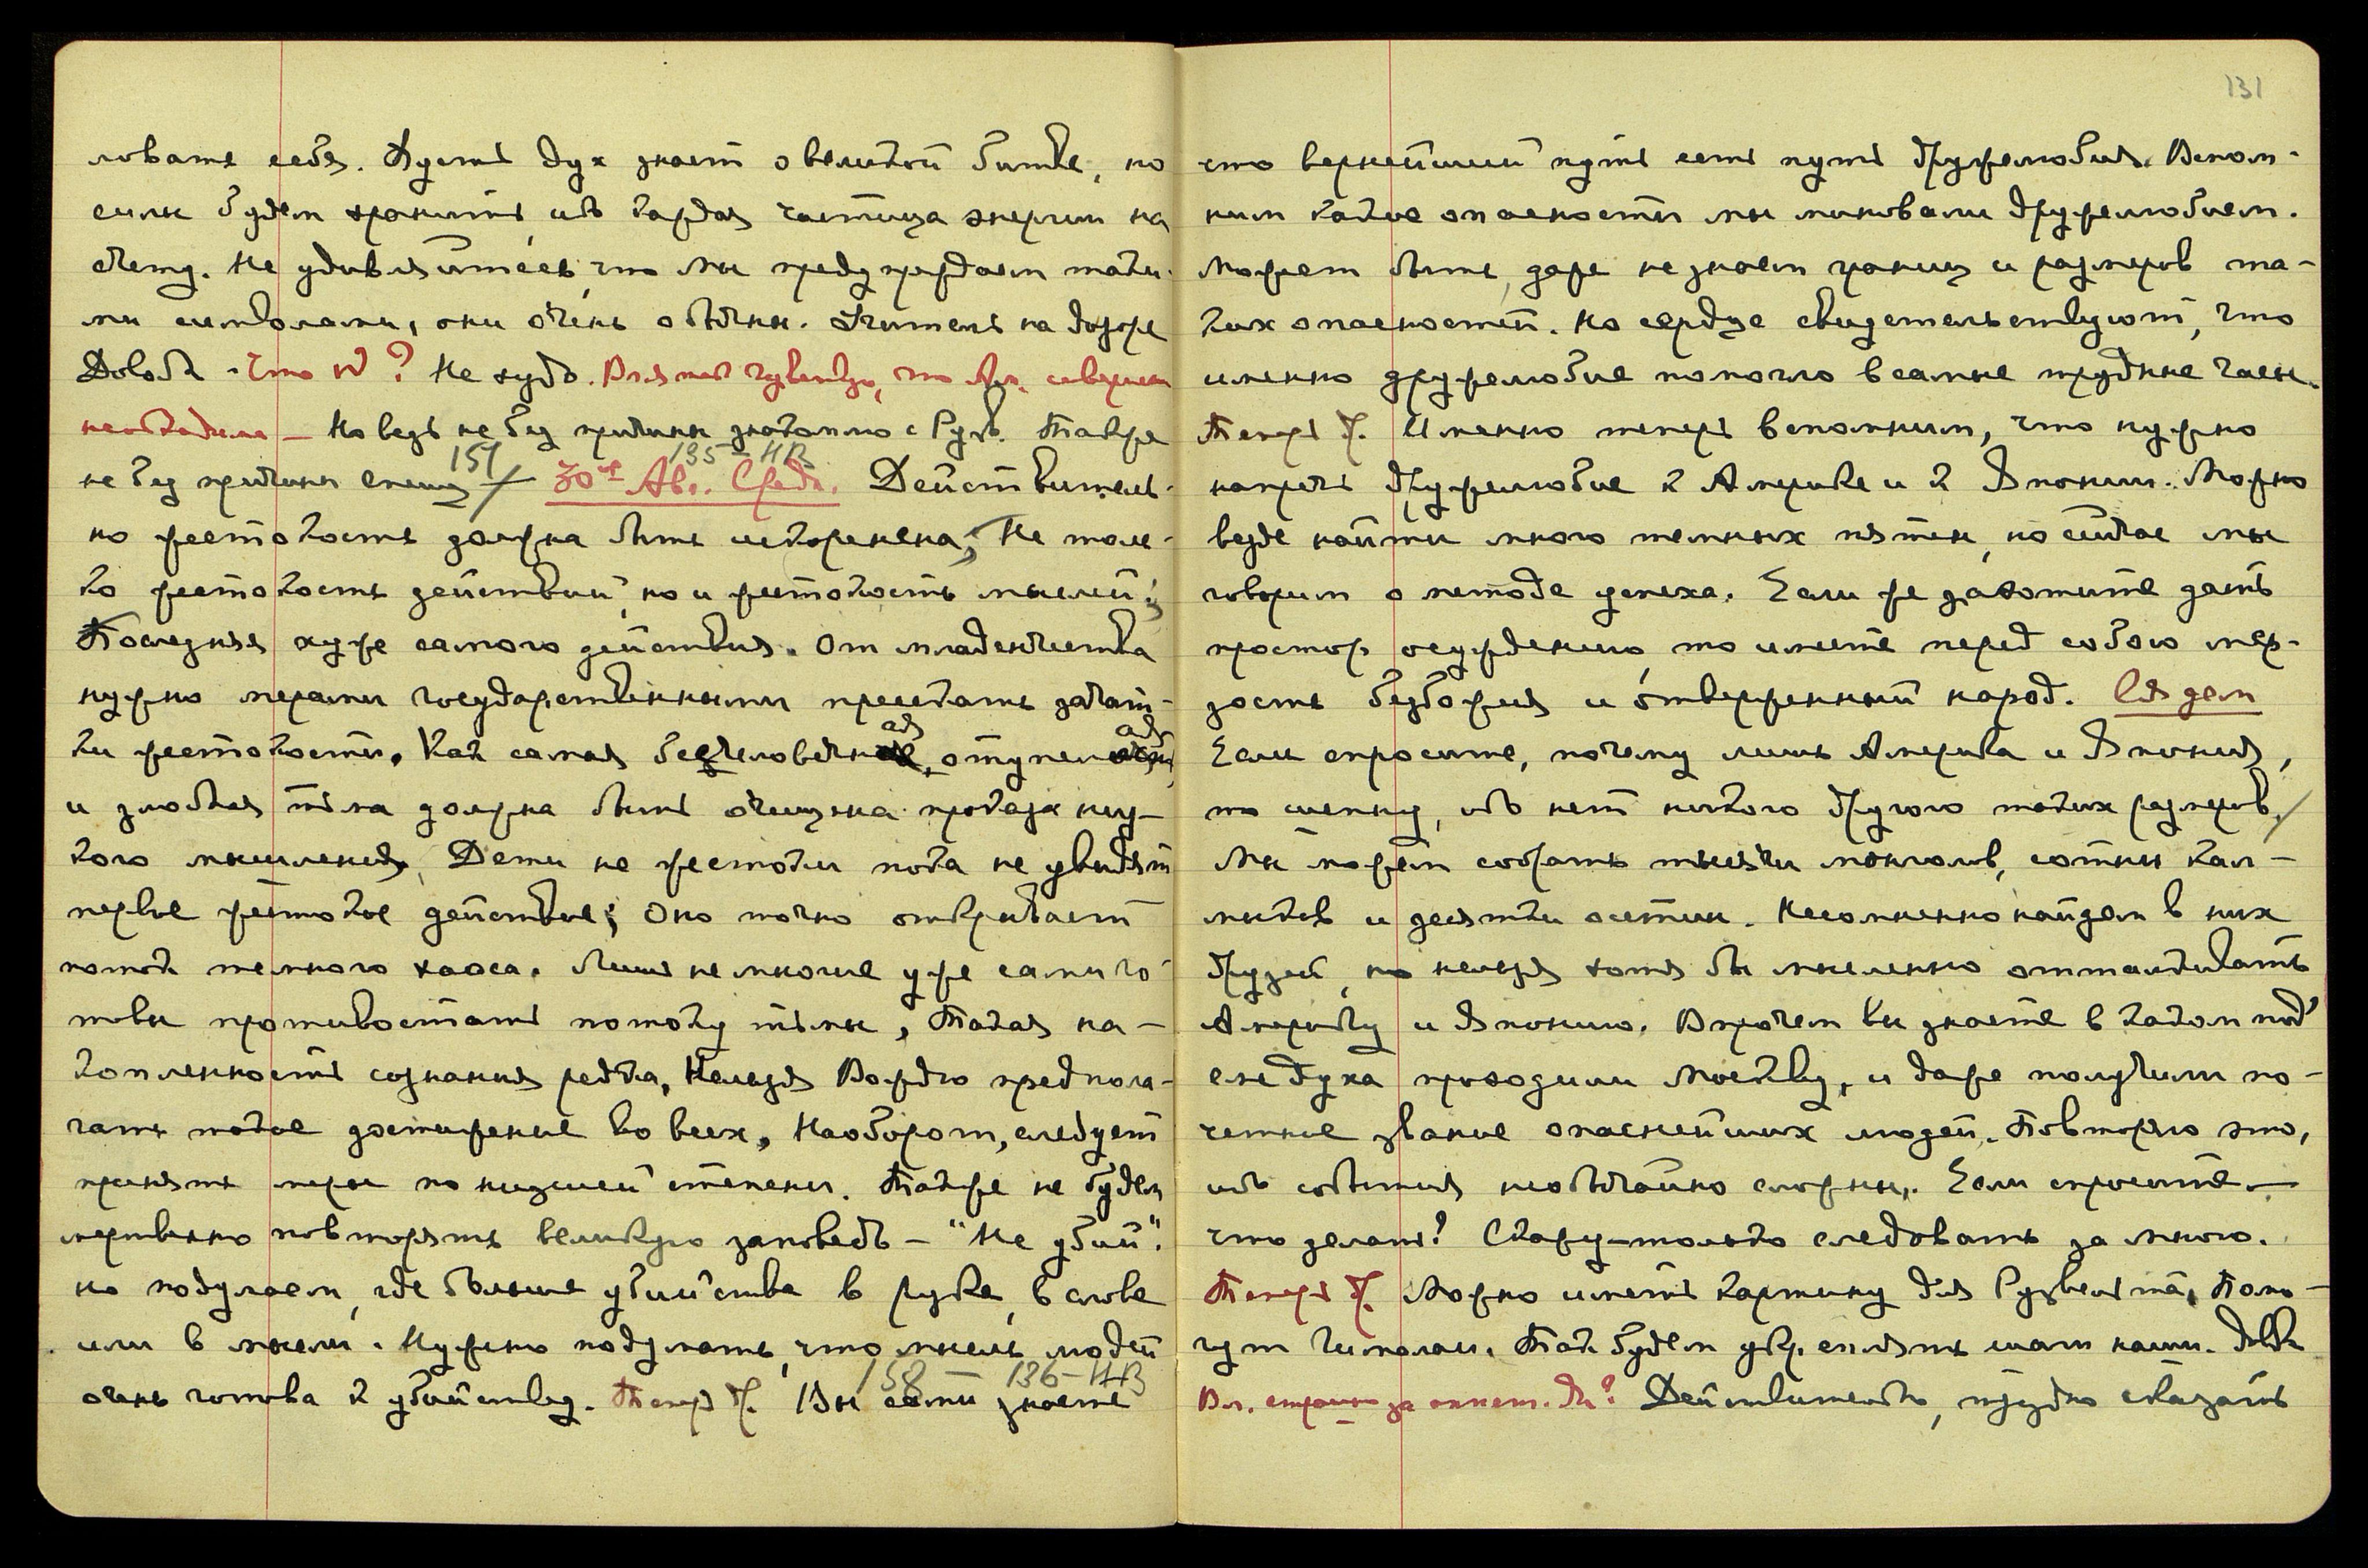 ловать себя. Пусть дух знает о великой битве, но
силы будем хранить, ибо каждая частица энергии на
счету. Не удивляйтесь, что Мы предупреждаем таки-
ми символами, они очень обычны. Учитель на дозоре
Довольно. Что ? Не худо. Вл., чувствую, что Ам. совершен
необходима — Но ведь не без причины знакомлю с Рузв. Также
не без причины спешу / 30го Авг. Среда. Действитель-
157 135 - НВ
но жестокость должна быть искоренена, Не толь-
ко жестокость действий, но и жестокость мыслей;
Последняя хуже самого действия. От младенчества
нужно мерами государственными пресекать зачат-
ки жестокости. Как самая бесчеловечная, отупелая
и злобная тьма должна быть очищена проказа низ-
кого мышления. Дети не жестоки пока не увидят
первое жестокое действие; Оно точно открывает
поток темного хаоса. Лишь немногие уже сами го-
товы противостать потоку тьмы, Такая на-
копленность сознания редка, Нельзя Ворожу предпола-
гать такое достижение во всех, Наоборот, следует
принять меры по низшей степени. Также не будем
мертвенно повторять великую заповедь — "Не убий".
но подумаем, где больше убийства в руке, в слове
или в мысли. Нужно подумать, что мысль людей
очень готова к убийству. Теперь др. Вы сами знаете
158 — 136 - НВ
131
что вернейший путь есть путь дружелюбия. Вспом-
ним какие опасности мы миновали дружелюбием.
Может быть, даже не знаем границ и размеров та-
ких опасностей. Но сердце свидетельствует, что
именно дружелюбие помогло в самые трудные часы.
Теперь др. Именно теперь вспомним, что нужно
напречь дружелюбие к Америке и к Японии. Можно
везде найти много темных пятен, но сейчас мы
говорим о методе успеха. Если же захотите дать
простор осуждению, то имеете перед собою мер-
зость безбожия и отверженный народ. Сядем
Если спросите, почему лишь Америка и Япония,
то шепну, ибо нет никого другого таких размеров.
Мы можем собрать тысячи монголов, сотни кал-
мыков и десятки осетин. Несомненно найдем в них
друзей, но нельзя хотя бы мысленно отталкивать
Америку и Японию. Впрочем вы знаете в каком под-
еме духа проходили Москву, и даже получили по-
четное звание опаснейших людей. Повторяю это,
ибо события необычайно сложны. Если спросите —
что делать? Скажу — только следовать за мною.
Теперь др. Можно иметь картину для Рузвельта, Помо-
гут Гималаи. Так будем укреплять шаги наши. Довольно
Вл. за ? Действительно, трудно сказать